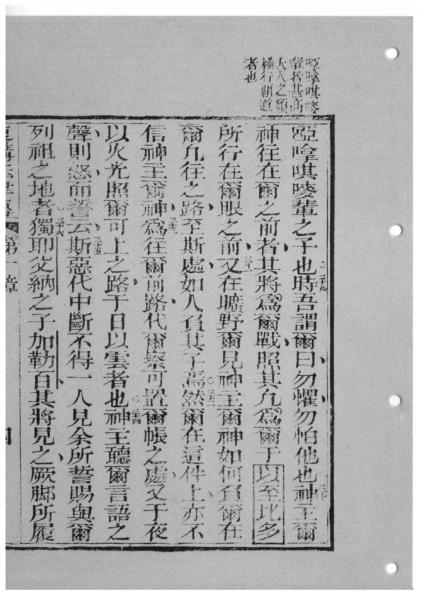 啞唭
輩者甚高
大人之類
橫行霸道
者也
啞唭輩之子也時吾謂爾曰勿懼勿怕他也神主爾
神往在爾之前者其將爲爾戰照其凡爲爾于以至比多
所行在爾眼之前又在曠野爾見神主爾神如何負爾在
爾凡往之路至斯處如人負其子焉然爾在這件上亦不
信神主爾神爲往爾前路代爾察可置爾帳之處又于夜
以火光照爾可上之路于日以雲者也神主聽爾言語之
聲則怒而誓云斯惡代中斷不得一人見余所誓賜與爾
列祖之地者獨耶父納之子加勒百其將見之厥脚所履
第一章